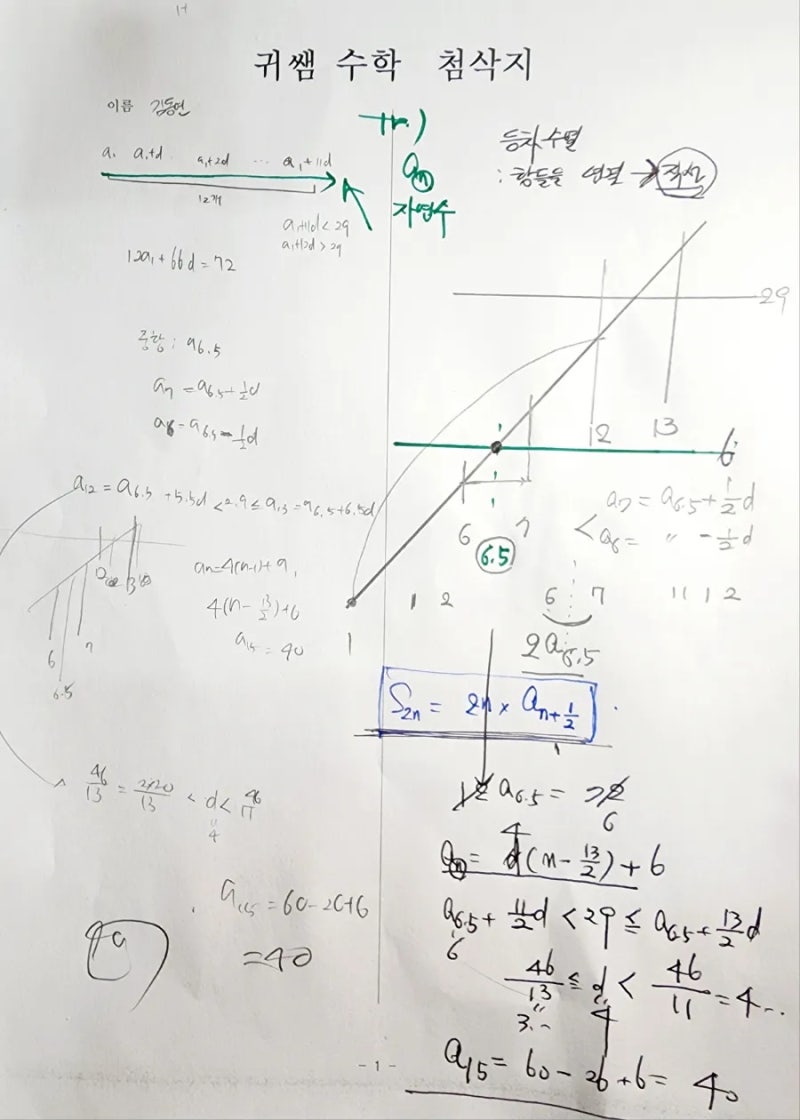 귀쌤 수학 첨삭지
이름 김동연
a₁ a₁+d a₁+2d ... a₁+11d
12개
a₁+11d < 29
a₁+12d > 29
12a₁ + 66d = 72
중항 : a6.5
a₇ = a6.5 + ½d
a6 = a6.5 - ½d
a12 = a6.5 + 5.5d < 29 ≤ a13 = a6.5 + 6.5d
6 6.5 7 12 13
an = 4(n-1) + a₁
4(n - 13/2) + 6
a15 = 40
46/13 = < d < 46/11
4
a15 = 60 - 26 + 6
= 40
40
an
자연수
등차수열
: 항들을 연결 → 직선
29
12 13
6
6 7
6.5
a7 = a6.5 + ½d
a6 = 〃 - ½d
1 1 2 6 7 11 12
2a6.5
S2n = 2n × an+½
12 a6.5 = 72
6
4
an = d(n - 13/2) + 6
a6.5 + 11/2 d < 29 ≤ a6.5 + 13/2 d
6
46/13 ≤ d < 46/11 = 4...
3... 4
a15 = 60 - 26 + 6 = 40
- 1 -